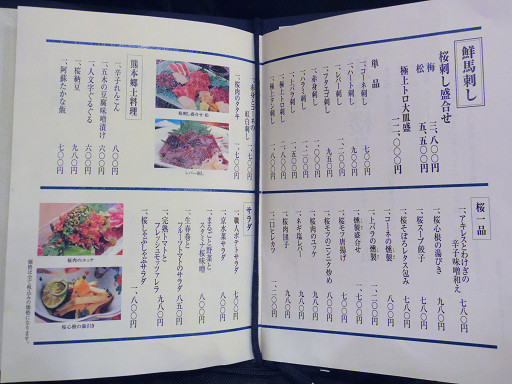 鮮馬刺し
桜刺し盛合せ
梅 三、八〇〇円
松 五、五〇〇円
極上トロ大皿盛 一二、〇〇〇円
単品
一、コーネ刺し 七〇〇円
一、ハート刺し
一、レバー刺し 一、二〇〇円
一、フタエゴ刺し 九五〇円
一、赤身刺し
一、ハラミ刺し
一、上バラ刺し
一、極上トロ刺し
一、極上タン刺し
一、赤身とコーネの紅白刺し 一、七〇〇円
一、桜肉のタタキ 一、七〇〇円
桜刺し盛合せ 松
レバー刺し
熊本郷土料理
一、辛子れんこん 八〇〇円
一、五木の豆腐味噌漬け 六〇〇円
一、一文字ぐるぐる 六〇〇円
一、桜納豆 九八〇円
一、阿蘇たかな飯 七〇〇円
桜一品
一、アキレスとわけぎの辛子味噌和え 七八〇円
一、桜心根の湯びき 九八〇円
一、桜スープ餃子 七八〇円
一、桜そぼろレタス包み 七八〇円
一、コーネの燻製
一、上バラの燻製
一、燻製盛合せ
一、桜モツ唐揚げ 七八〇円
一、桜モツのニンニク炒め 八〇〇円
一、桜肉のユッケ 九八〇円
一、ネギ塩レバー 九八〇円
一、桜肉団子 九八〇円
一、一口ヒレカツ 一、二〇〇円
サラダ
一、職人ポテトサラダ 七八〇円
一、京水菜サラダ 八〇〇円
一、まるごと野菜とスタミナ桜味噌 八〇〇円
一、生春巻とフルーツトマトのサラダ 八五〇円
一、完熟トマトとフレッシュモッツァレラ 九八〇円
一、桜しゃぶしゃぶサラダ 一、八〇〇円
桜肉のユッケ
桜心根の湯引き